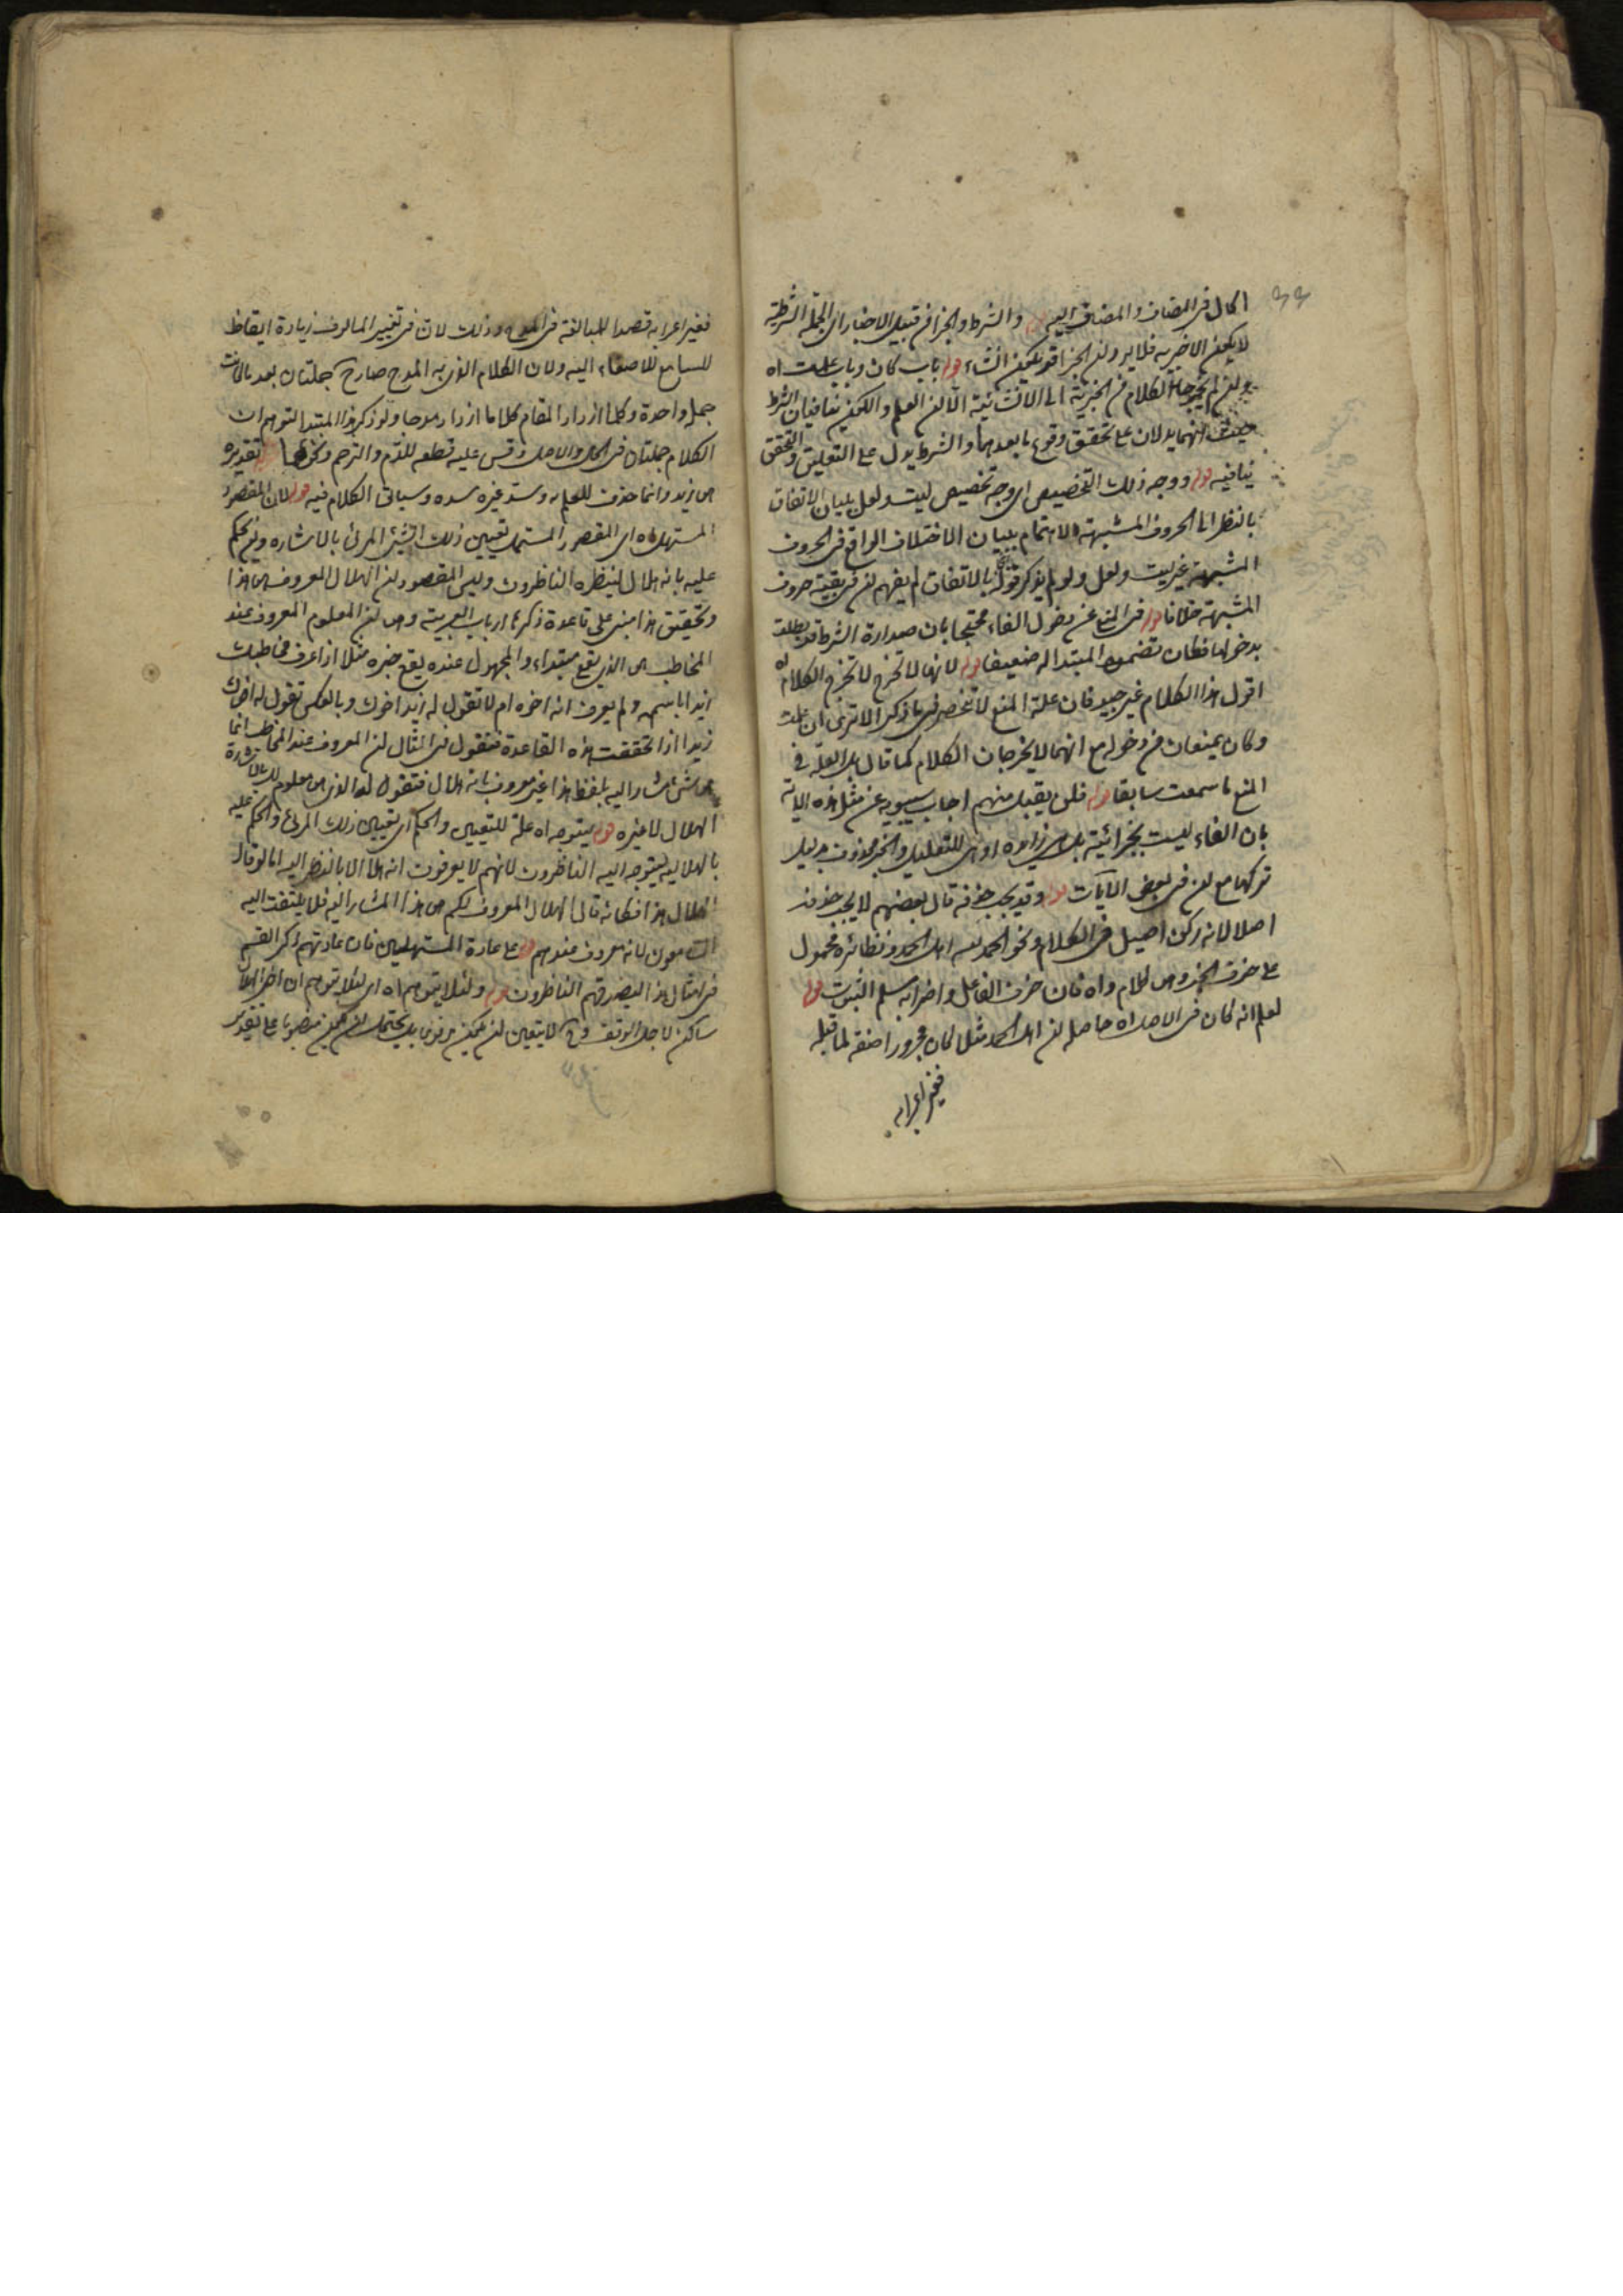 ٩٩
الحال في المضاف والمضاف اليه قوله والشرط والجزا من قبيل الاخبار اى الجملة الشرطية
لا يكون الا خبرية فلا يرد ان الجزا قد يكون انشاء قوله باب كان وباب علمت اه
وان لم يخرجا الكلام من الخبرية الى الانشائية الا ان العلم والكون ينافيان الشرط
حيث انهما يدلان على تحقيق وقوع ما بعدهما والشرط يدل على التعليق والتحقق
ينافيه قوله ووجه ذلك التخصيص اى وجه تخصيص ليت ولعل ببيان الاتفاق
بالنظر الى الحروف المشبهة الاهتمام ببيان الاختلاف الواقع في الحروف
المشبهة غير ليت ولعل ولو لم يذكر قوله بالاتفاق لم يفهم ان في بقية حروف
المشبهة خلافا قوله في المنع عن دخول الفاء محتجا بان صدارة الشرط قد بطلت
بدخولها فكان تضمن المبتدا له ضعيفا قوله لانها لا تخرج لا تخرج الكلام اه
اقول هذا الكلام غير جيد فان علة المنع لا تنحصر فى ما ذكر الا ترى ان علمت
وكان يمنعان من دخوله مع انهما لا يخرجان الكلام كما قال بل العلة في
المنع ما سمعت سابقا قوله فلن يقبل منهم اجاب سيبويه عن مثل هذه الاية
بان الفاء ليست بجزائية بل هى زايده او هى للتعليل والخبر محذوف بدليل
تركها مع ان في بعض الآيات قوله وقد يجب حذفه قال بعضهم لا يجب حذف
اصلا لانه ركن اصيل في الكلام ونحو الحمد لله اهل الحمد ونظائره محمول
على حذف الجزء وهى لحلام واه فان حذف الفاعل واضرابه مسلم الثبوت قوله
لعلم انه كان في الاصل اه حاصله ان اهل الحمد مثلا كان مجرورا صفة لما قبله
فغير اعرابه
فغير اعرابه قصدا للمبالغة في المدح وذلك لان في تغيير المالوف زيادة ايقاظ
للسامع للاصغاء اليه ولان الكلام الذى به المدح صار ح جملتان بعد ما كانت
جملة واحدة وكلما ازداد المقام كلاما ازداد مدحا ولو ذكر هذا المبتدا لتوهم ان
الكلام جملتان في الحال والاصل وقس عليه قطعه للذم والترحم ونحوهما قوله تقديره
هى زيد وانما حذف للعلم به وسد غيره مسده وسياتى الكلام فيه قوله لان المقصود
المستهل اه اى المقصود المستهل تعيين ذلك الشئ المرئ بالاشاره وان يحكم
عليه بانه هلال لينظره الناظرون وليس المقصود ان الهلال المعروف هى هذا
وتحقيق هذا مبنى على قاعدة ذكرها ارباب العربية وهى ان المعلوم المعروف عند
المخاطب هى الذى يقع مبتداء والمجهول عنده يقع خبره مثلا اذا عرف مخاطبك
زيدا باسمه ولم يعرف انه اخوه ام لا تقول له زيد اخوك وبالعكس تقول له اخوك
زيد اذا تحققت هذه القاعدة فنقول فى المثال ان المعروف عند المخاطب انما
هى شئ مشار اليه بلفظ هذا غير معروف بانه هلال فتقول له الذى هى معلوم لك بالاشارة
الهلال لا غيره قوله يتوجه اه علة للتعيين والحكم اى تعيين ذلك المرئ والحكم عليه
بالهلالية ليتوجه اليه الناظرون لانهم لا يعرفون انه هلال الا بالنظر اليه اما لو قال
الهلال هذا فكانه قال الهلال المعروف لكم هى هذا المشار اليه فلا يلتفت اليه
السامعون لانه معروف عندهم قوله على عادة المستهلين فان عادتهم ذكر القسم
في امثال هذا ليصدقهم الناظرون قوله ولئلا يتوهم اه اى لئلا يتوهم ان اخر الهلال
ساكن لاجل الوقف وح لا يتعين ان يكون مرفوعا بل يحتمل ان يكون منصوبا على تقدير